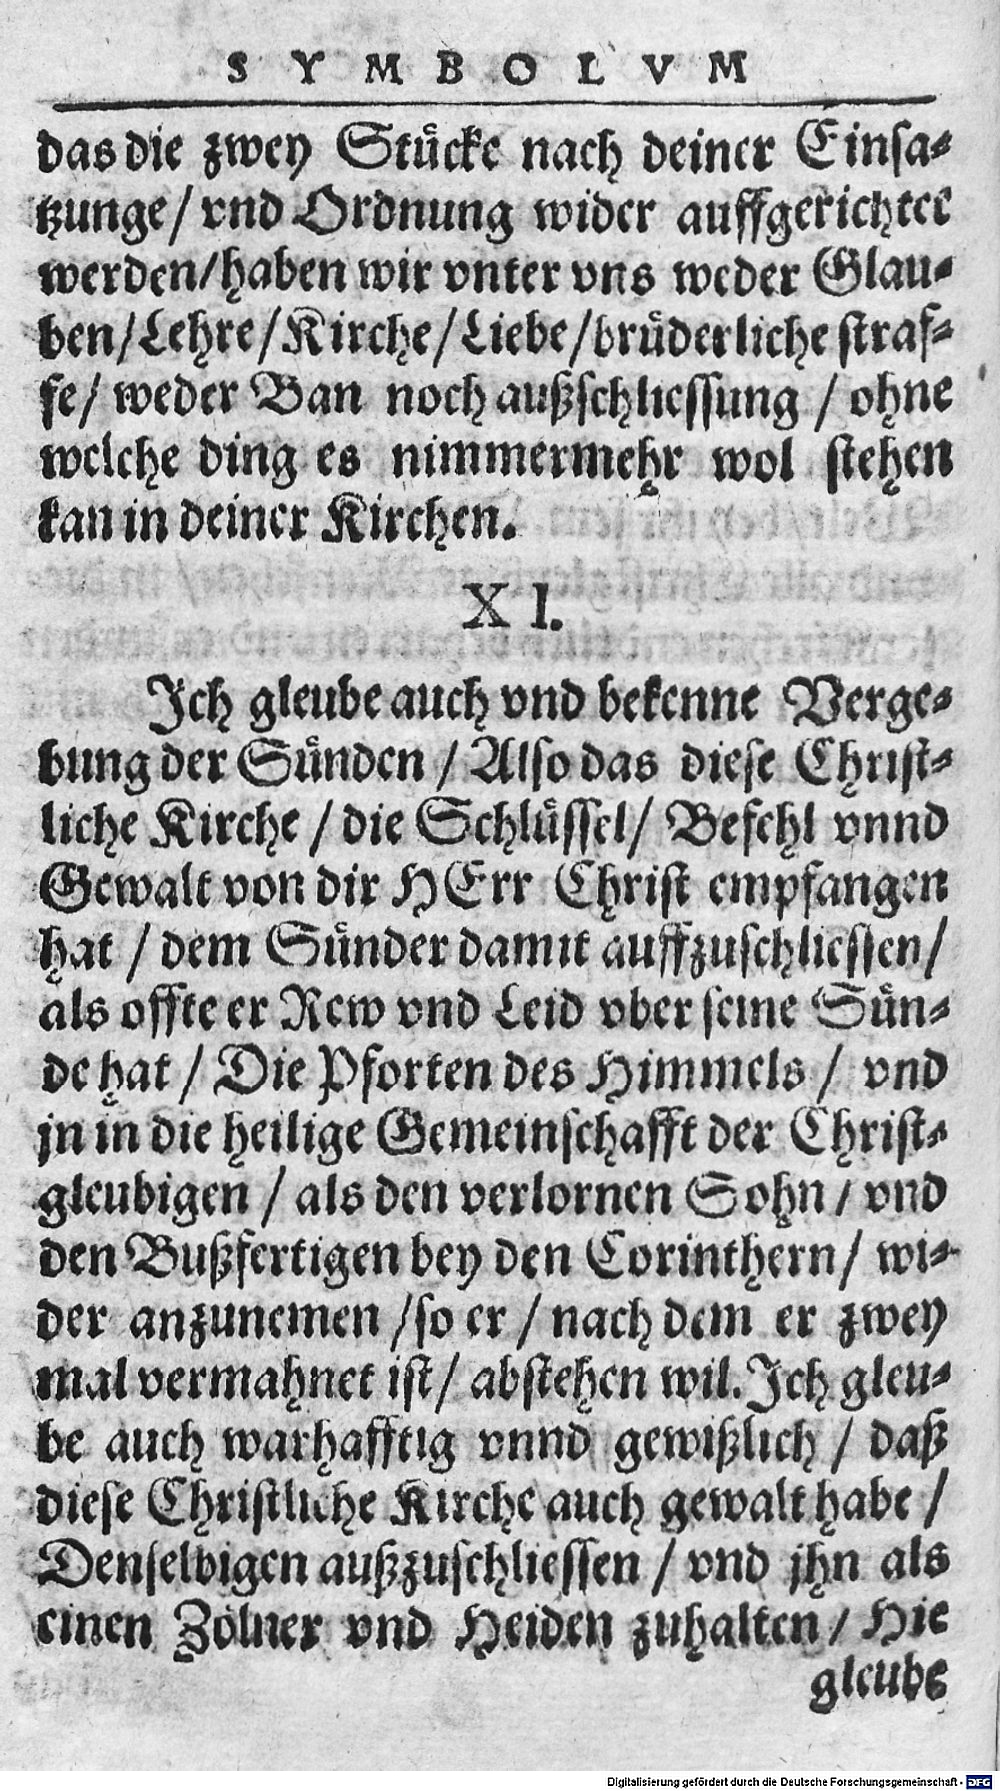 S Y M B O L V M
das die zwey Stücke nach deiner Einsa-
tzunge/ vnd Ordnung wider auffgerichtet
werden/haben wir vnter vns weder Glau-
ben/Lehre/Kirche/Liebe/brüderliche straf-
fe/ weder Ban noch außschliessung / ohne
welche ding es nimmermehr wol stehen
kan in deiner Kirchen.
X I.
Ich gleube auch vnd bekenne Verge-
bung der Sünden / Also das diese Christ-
liche Kirche / die Schlüssel/ Befehl vnnd
Gewalt von dir HErr Christ empfangen
hat / dem Sünder damit auffzuschliessen/
als offte er Rew vnd Leid vber seine Sün-
de hat / Die Pforten des Himmels / vnd
jn in die heilige Gemeinschafft der Christ-
gleubigen / als den verlornen Sohn / vnd
den Bußfertigen bey den Corinthern/ wi-
der anzunemen /so er / nach dem er zwey
mal vermahnet ist/ abstehen wil. Ich gleu-
be auch warhafftig vnnd gewißlich / daß
diese Christliche Kirche auch gewalt habe /
Denselbigen außzuschliessen / vnd jhn als
einen Zölner vnd Heiden zuhalten / Hie
gleube
Digitalisierung gefördert durch die Deutsche Forschungsgemeinschaft - DFG